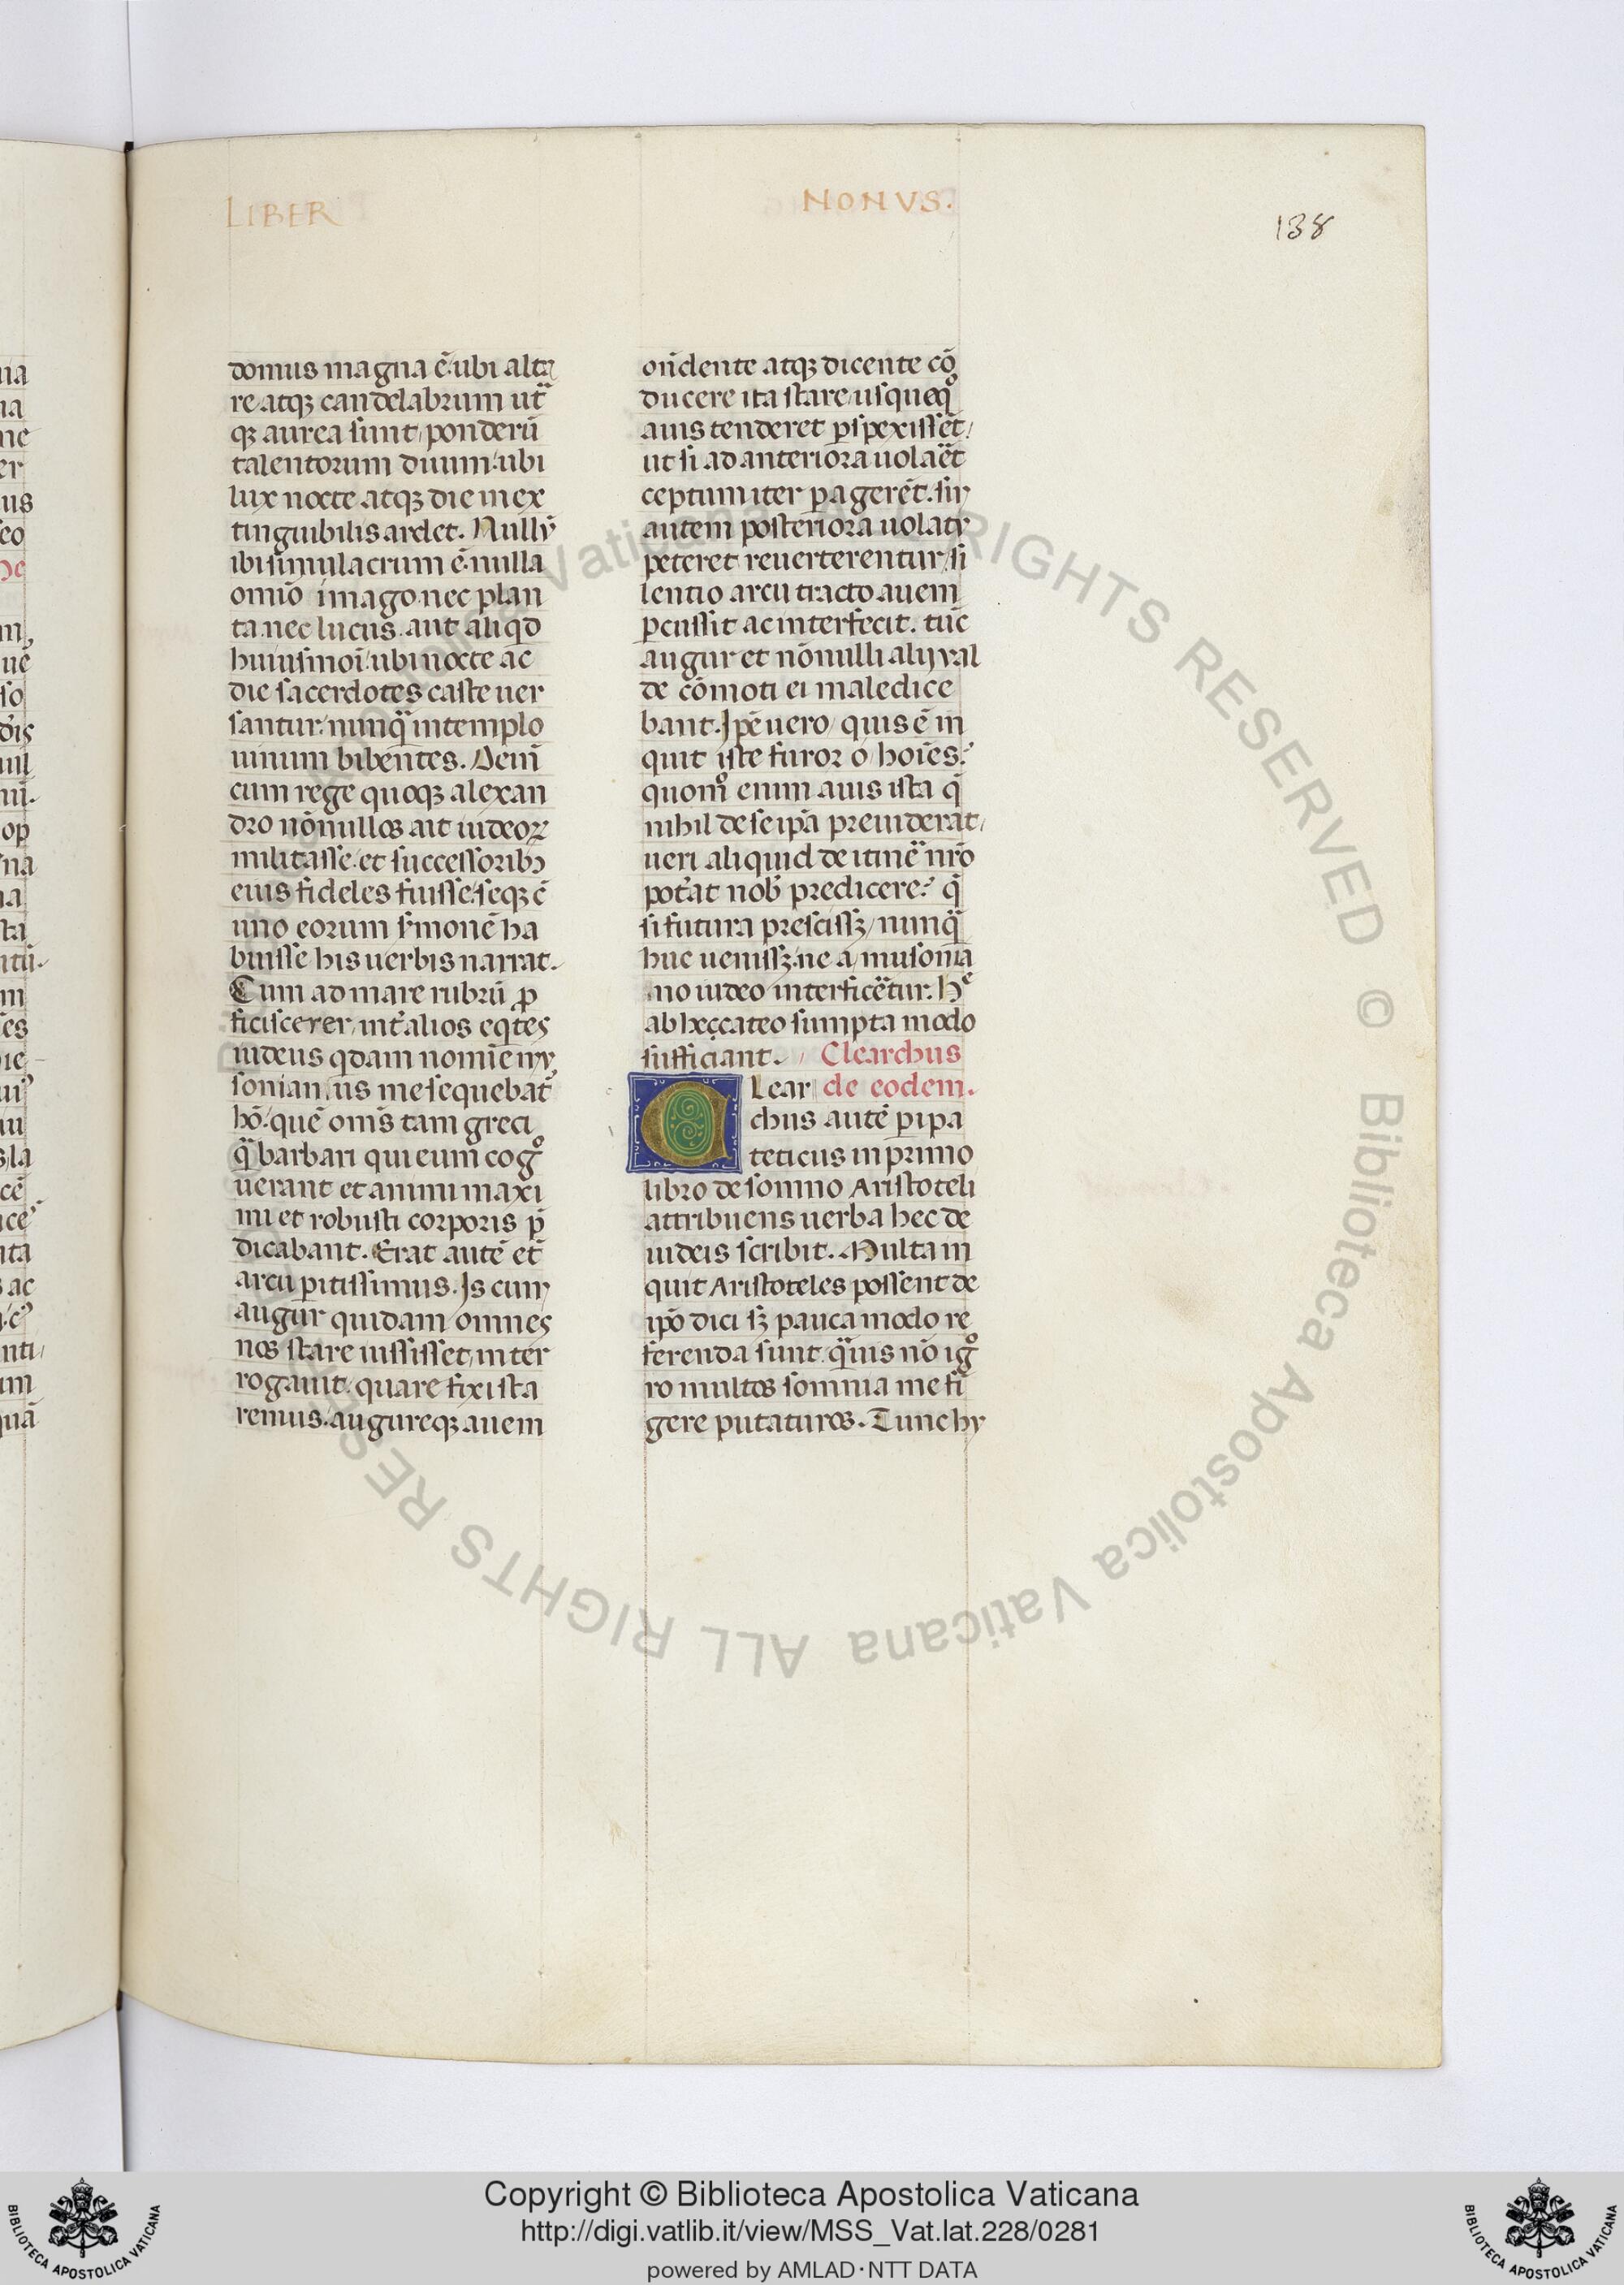 LIBER
NONVS.
138
domus magna ē. ubi alta
re atqꝫ candelabrum utͣ
qꝫ aurea sunt, ponderū
talentorum duum. ubi
lux nocte atqꝫ die inex
tinguibilis ardet. Nullū
ibi simulacrum ē. nulla
omīo imago. nec plan
ta. nec lucus. aut aliqd
huiusmōi. ubi nocte ac
die sacerdotes caste uer
santur. nunqͣ in templo
uinum bibentes. Deniͨ
cum rege quoqꝫ alexan
dro nōnullos ait iudeoꝝ
militasse. et successoribꝫ
eius fideles fuisse. seqꝫ cū
uno eorum ẜmonē ha
buisse his uerbis narrat.
Cum ad mare rubrū ꝓ
ficiscerer, int̄ alios eqͥtes
iudeus qͥdam nomīe my
sonianus me sequebat᷑
hō. quē oms tam greci
qͣ barbari qui eum cogͦ
uerant et animi maxi
mi et robusti corporis p̄
dicabant. Erat autē et
arcu ꝑitissimus. Is cum
augur quidam omnes
nos stare iussisset, inter
rogauit. quare fixi sta
remus. augureqꝫ auem
on̄dente atqꝫ dicente cō
ducere ita stare, usqueqͦ
auis tenderet ꝑspexissēt,
ut si ad anteriora uolaēt
ceptum iter ꝑagerēt. sin
autem posteriora uolatu
peteret reuerterentur, si
lentio arcu tracto auem
ꝑcussit ac interfecit. tūc
augur et nōnulli alij val
de cōmoti ei maledice
bant. Ip̄e uero, quis ē in
quit iste furor ō hoīes?
quomͦ enim auis ista qͥ
nihil de se ip̄a preuiderat,
ueri aliquid de itinē nr̄o
pot̄at nob̄ predicere? qͥ
si futura prescissꝫ, nunqͣ
huc uenissꝫ. ne a musonia
no iudeo interficēt᷑ur. Hͨ
ab heccateo sumpta modo
sufficiant. Clearchus
de eodem.
Clear
chus autē ꝑipa
teticus in primo
libro de somno Aristoteli
attribuens uerba hec de
iudeis scribit. Multa in
quit Aristoteles possent de
ip̄o dici sꝫ pauca modo re
ferenda sunt. qͣuis nō igͦ
ro multos somnia me fi
gere putaturos. Tunc hy
Copyright © Biblioteca Apostolica Vaticana
http://digi.vatlib.it/view/MSS_Vat.lat.228/0281
powered by AMLAD·NTT DATA
BIBLIOTECA APOSTOLICA VATICANA
BIBLIOTECA APOSTOLICA VATICANA
© Biblioteca Apostolica Vaticana ALL RIGHTS RESERVED